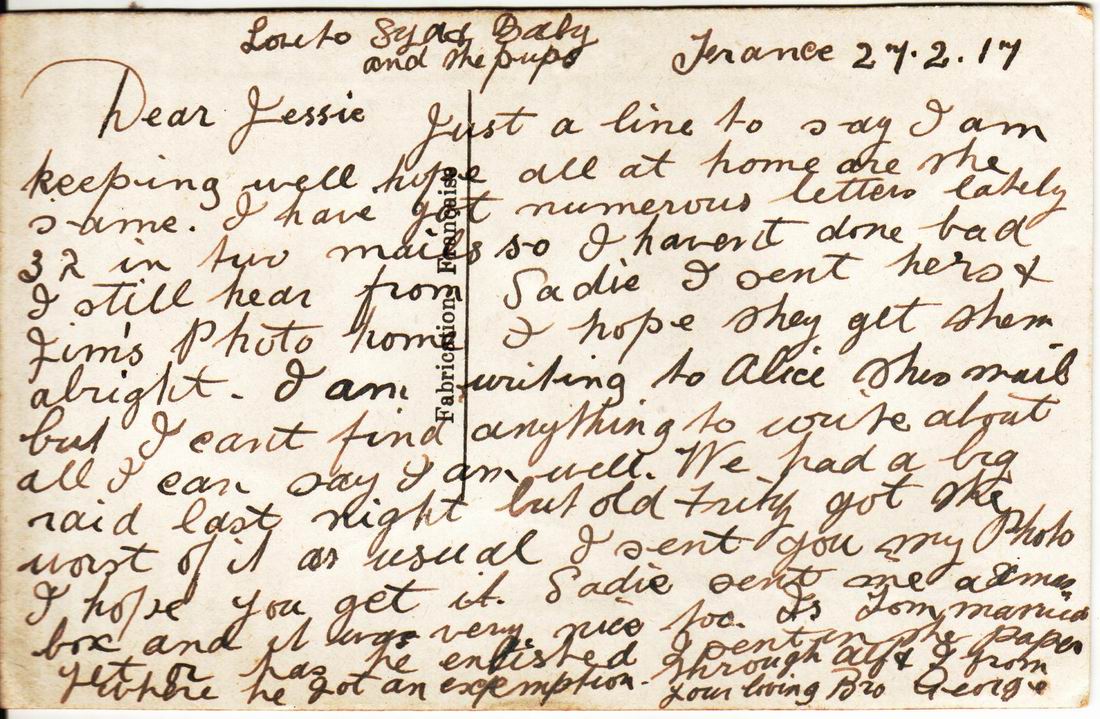 Love to Syd & Baby
and the pups
France 27.2.17
Dear Jessie Just a line to say I am
keeping well hope all at home are the
same. I have got numerous letters lately
32 in two mails so I havent done bad
I still hear from Sadie I sent hers &
Jim's Photo home I hope they get them
alright. I am writing to Alice this mail
but I cant find anything to write about
all I can say I am well. We had a big
raid last night but old Fritz got the
worst of it as usual I sent you my Photo
I hope you get it. Sadie sent me a Xmas
box and it was very nice too. Is Tom married
yet or has he enlisted I sent in the paper
where he got an exemption. through Alf & I from
your loving Bro George
Fabrication Française